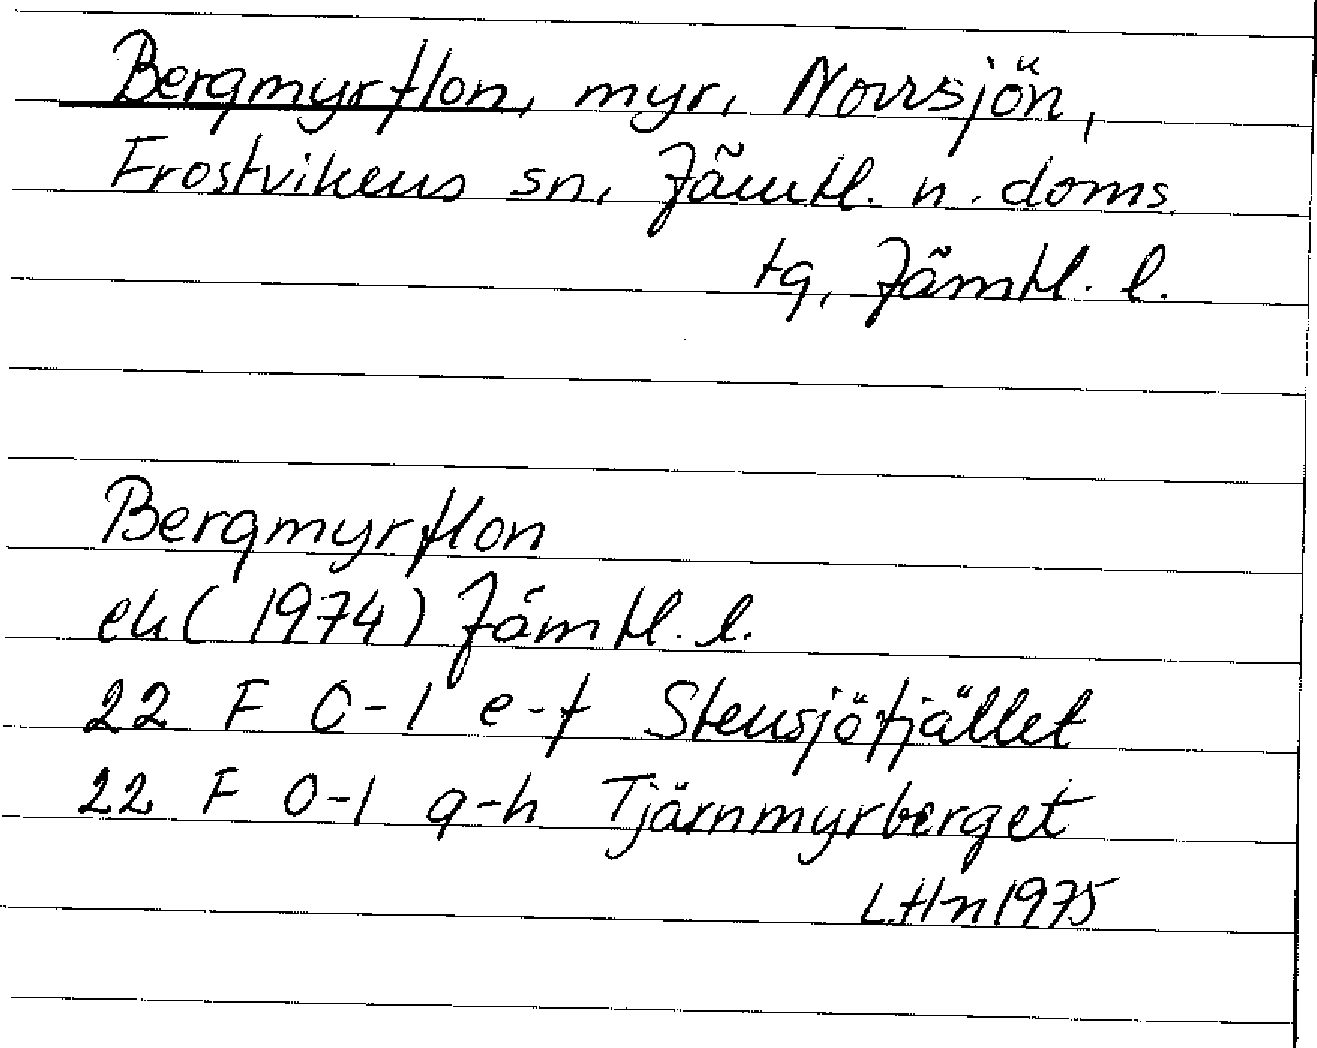 Bergmyrflon, myr, Norrsjön,
Frostvikens sn, Jämtl. n. doms.
tg, Jämtl. l.
Bergmyrflon
ek (1974) Jämtl. l.
22 F 0-1 e-f Stensjöfjället
22 F 0-1 g-h Tjärnmyrberget
LHn 1975